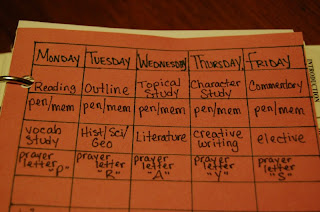 MONDAY TUESDAY WEDNESDAY THURSDAY FRIDAY
Reading Outline Topical Study Character Study Commentary
pen/mem pen/mem pen/mem pen/mem pen/mem
vocab study Hist/Sci/Geo Literature creative writing elective
prayer letter "P" prayer letter "R" prayer letter "A" prayer letter "Y" prayer letter "S"
INTRODUCTION